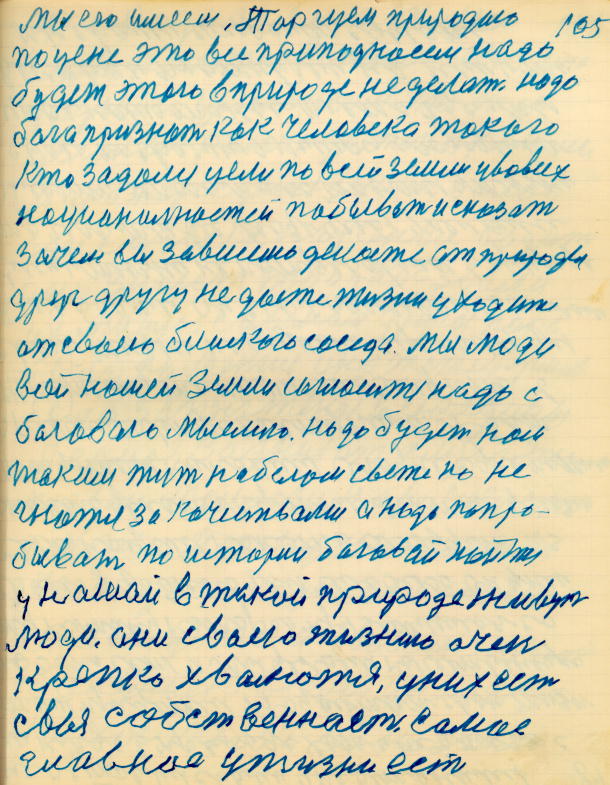 мы его имеем, Торгуем природою 105
по цене это все приподносем надо
будет этого в природе не делат. надо
бога признат как человека такого
кто задалси цели по всей земли у всех
национальностей побыват и сказат
зачем вы зависешь делаете от природы
друг другу не даете жизни уходите
от своего блиского соседа. мы люди
всей нашей Земли соглосится надо с
боговаго мыслию. надо будет нам
таким тут на белом свете но не
гнатся за качествами а надо попро-
быват по истории боговай найти
у нашай в такой природе живут
люди. они своего жизнию очен
крепко хвалются, у них ест
своя собственност. самое
главное у жизни ест